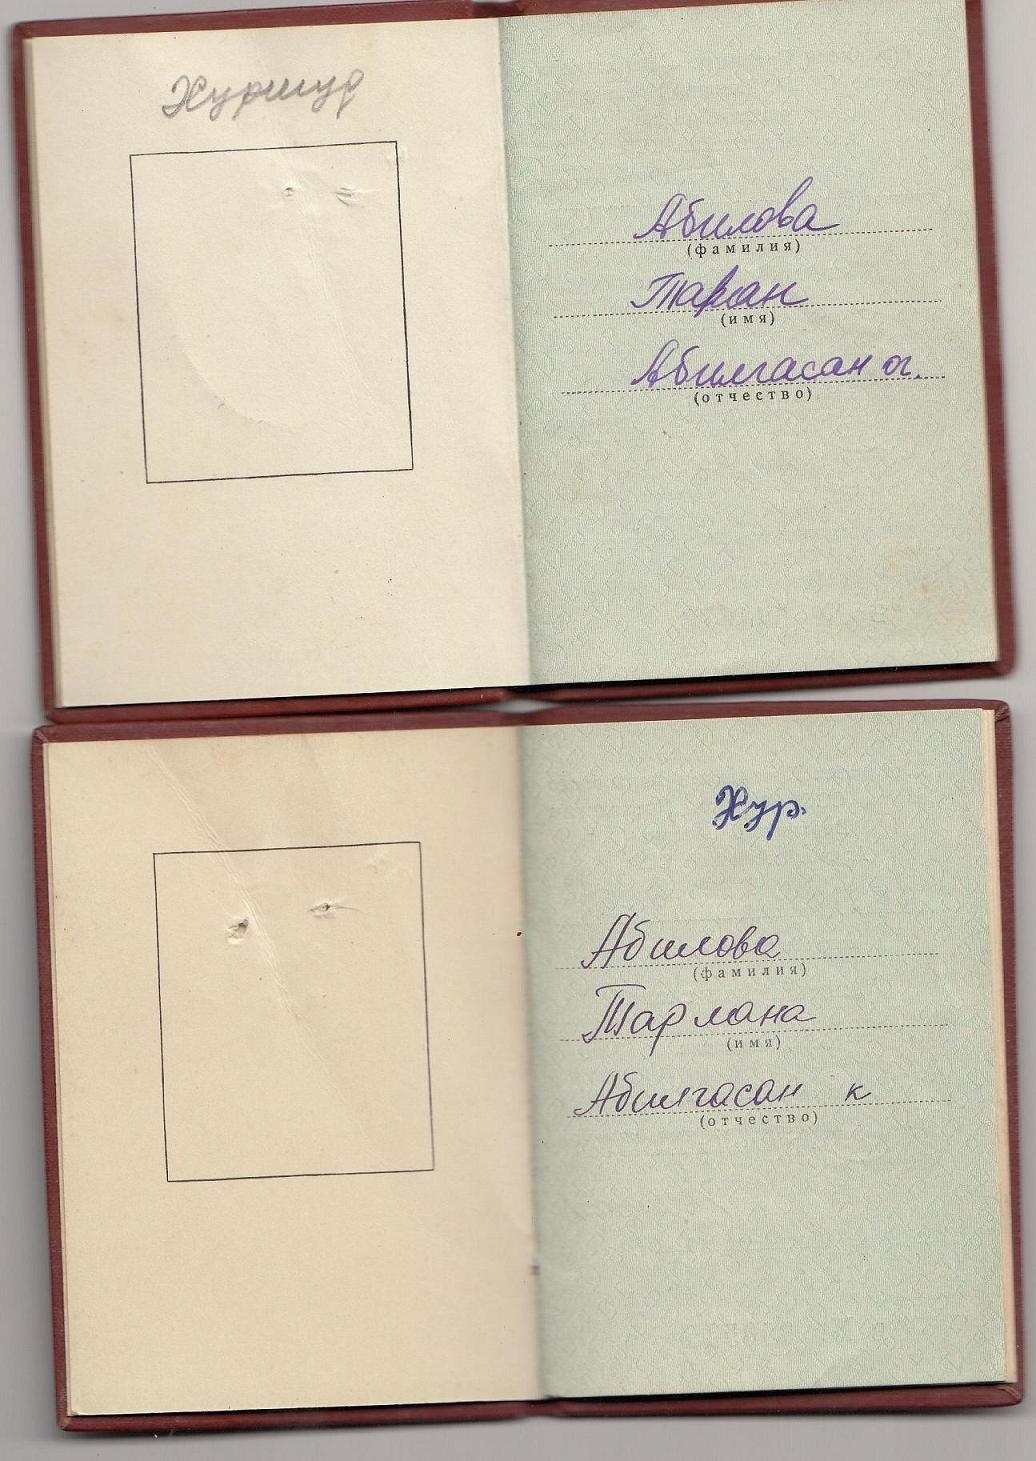 Хуршуд
Абилова
(фамилия)
(имя)
Абилгасан ог.
(отчество)
Хур.
Абилова
(фамилия)
Тармана
(имя)
Абилгасан к
(отчество)